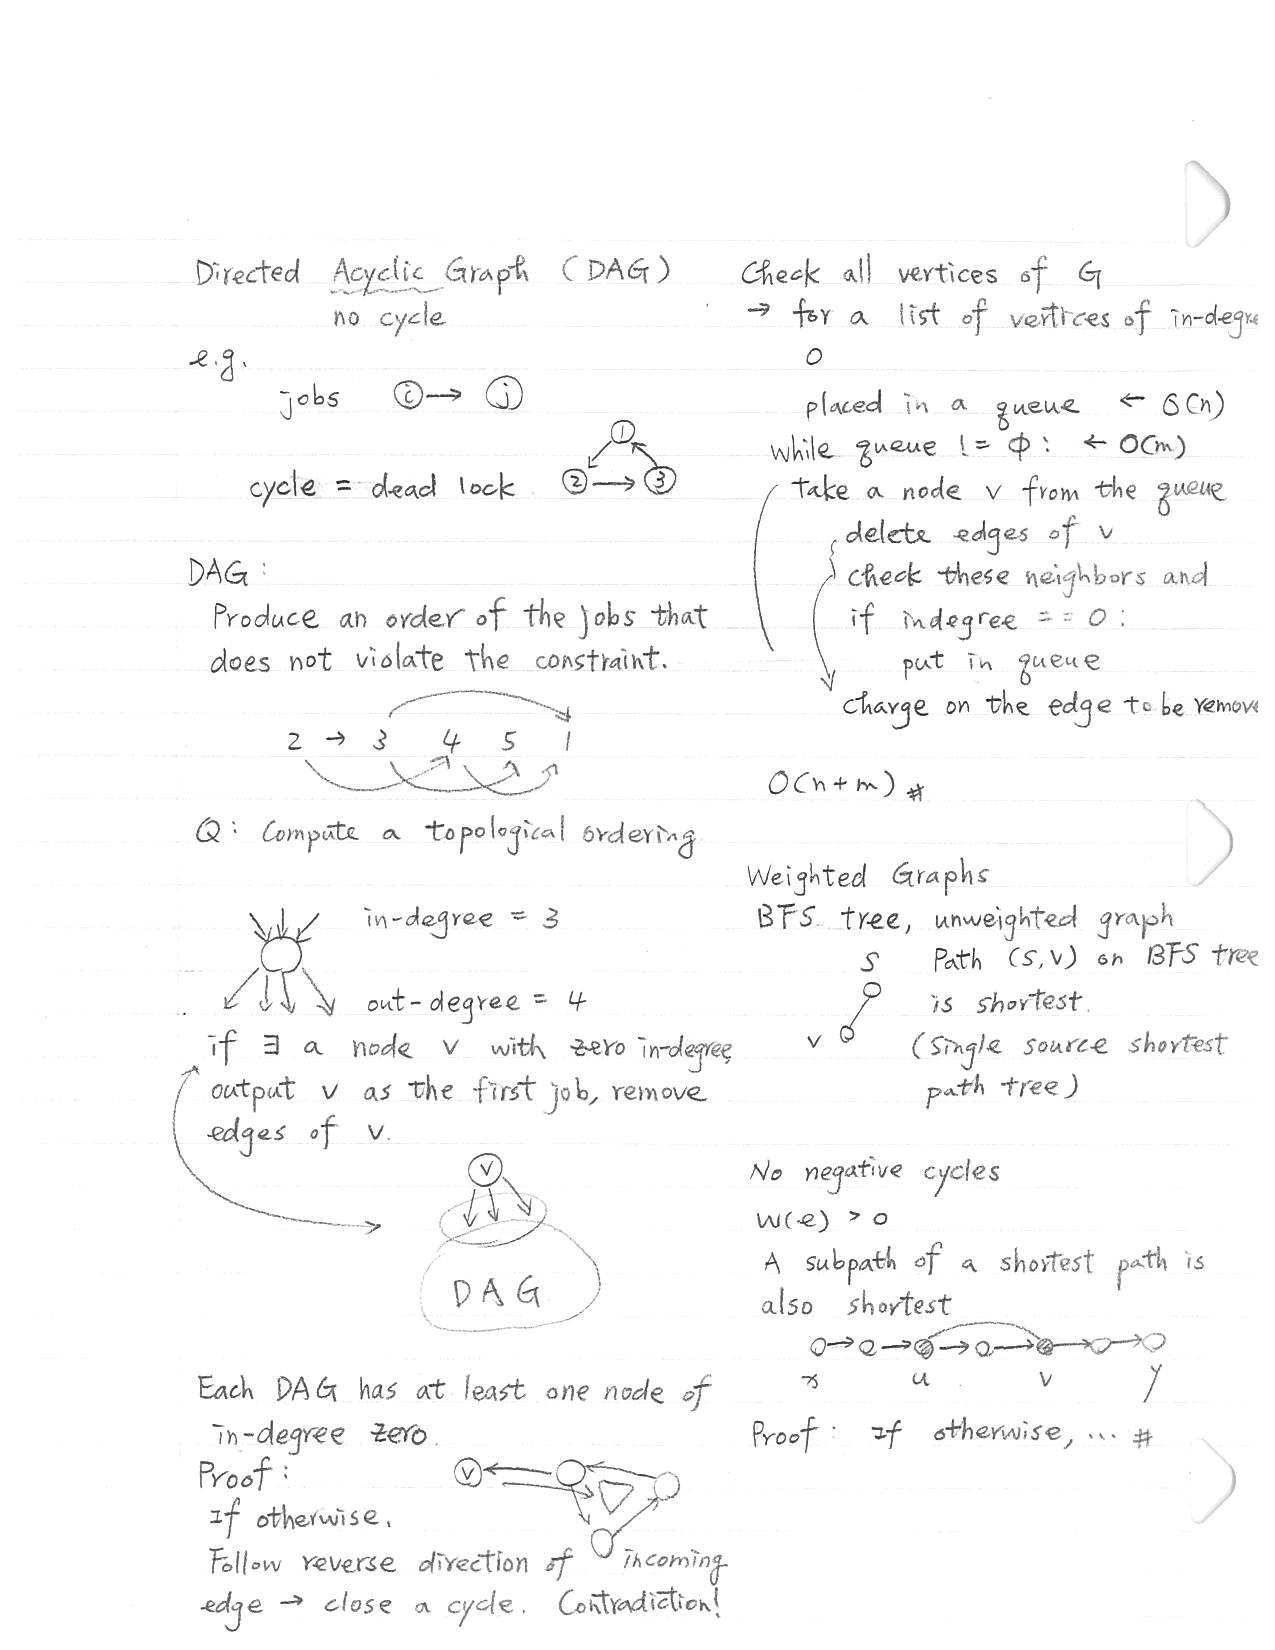 Directed Acyclic Graph (DAG)
no cycle
e.g.
jobs i → j
cycle = dead lock
1
2 → 3
DAG:
Produce an order of the jobs that
does not violate the constraint.
2 → 3 4 5 1
Q: Compute a topological ordering
in-degree = 3
out-degree = 4
if ∃ a node v with zero in-degree,
output v as the first job, remove
edges of v.
v
DAG
Each DAG has at least one node of
in-degree zero.
Proof:
v
If otherwise,
Follow reverse direction of incoming
edge → close a cycle. Contradiction!
Check all vertices of G
→ for a list of vertices of in-degre
0
placed in a queue ← O(n)
while queue != Φ: ← O(m)
take a node v from the queue
delete edges of v
check these neighbors and
if indegree == 0:
put in queue
charge on the edge to be remove
O(n+m) #
Weighted Graphs
BFS tree, unweighted graph
S Path (S,V) on BFS tree
is shortest.
v (Single source shortest
path tree)
No negative cycles
W(e) > 0
A subpath of a shortest path is
also shortest
x u v y
Proof: If otherwise, ... #